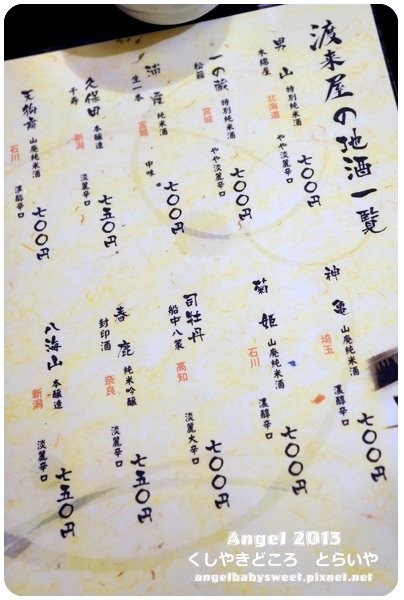 渡来屋の地酒一覧
男山 特別純米酒
木綿屋
北海道
やや淡麗辛口
七〇〇円
一の蔵 特別純米酒
松籟
宮城
やや淡麗辛口
七〇〇円
浦霞 純米酒
生一本
宮城
中味
七〇〇円
久保田 本醸造
千寿
新潟
淡麗辛口
七五〇円
天狗舞 山廃純米酒
石川
濃醇辛口
七〇〇円
神亀 山廃純米酒
埼玉
濃醇辛口
七〇〇円
菊姫 山廃純米酒
石川
濃醇辛口
七〇〇円
司牡丹
船中八策
高知
淡麗大辛口
七〇〇円
春鹿 純米吟醸
封印酒
奈良
淡麗辛口
七五〇円
八海山 本醸造
新潟
淡麗辛口
七五〇円
Angel 2013
くしやきどころ とらいや
angelbabysweet.pixnet.net